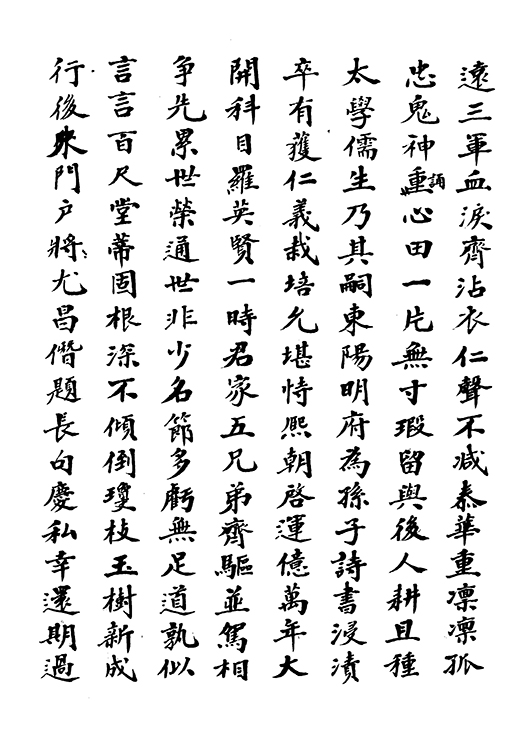 遠三軍血淚齊沾衣仁聲不減泰華重凜凜孤
忠鬼神重誦心田一片無寸瑕留與後人耕且種
太學儒生乃其嗣東陽明府為孫子詩書浸漬
卒有獲仁義栽培允堪恃熙朝啓運億萬年大
開科目羅英賢一時君家五兄弟齊驅並駕相
爭先累世榮通世非少名節多虧無足道孰似
言言百尺堂蒂固根深不傾倒瓊枝玉樹新成
行後來門戶將尤昌僭題長句慶私幸還期過